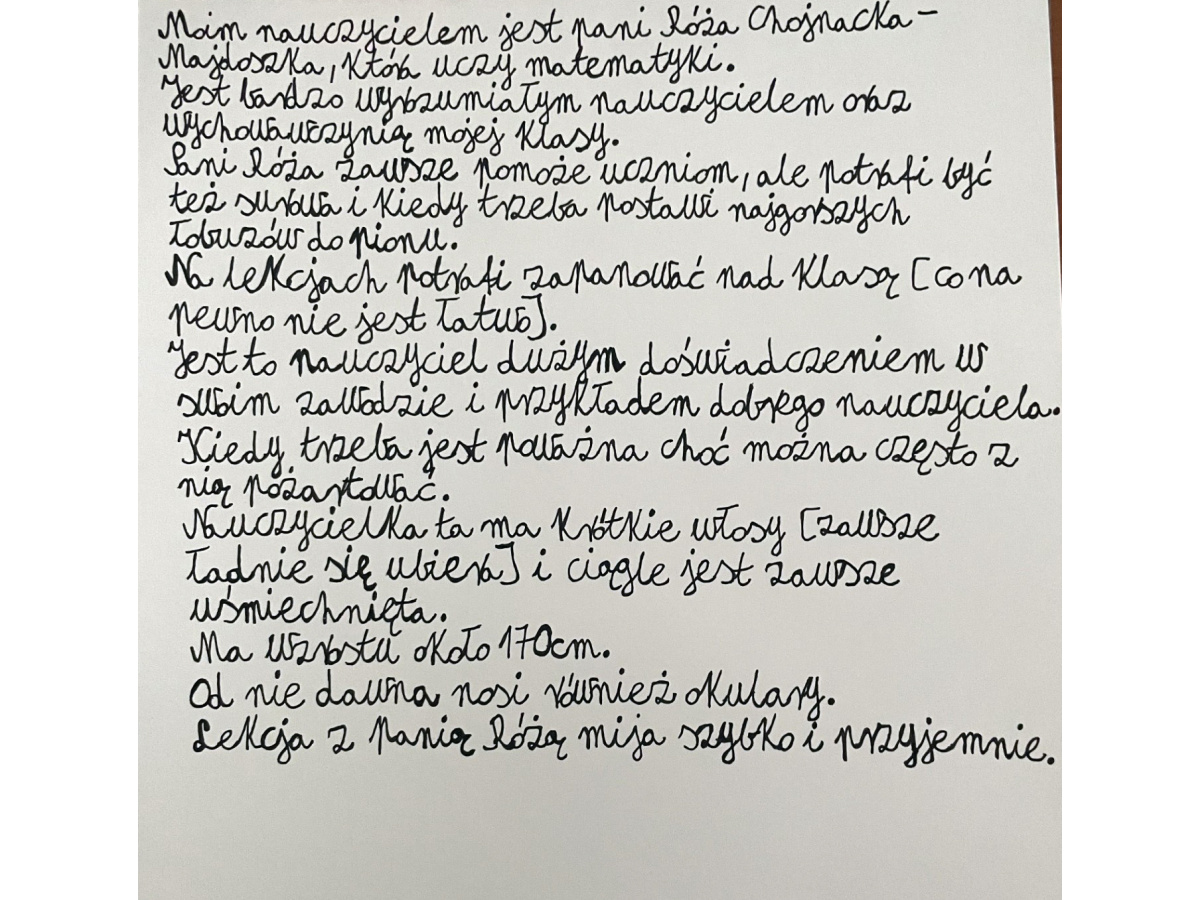 Moim nauczycielem jest pani Róża Chojnacka-
Majdoszka, która uczy matematyki.
Jest bardzo wyrozumiałym nauczycielem oraz
wychowawczynią mojej klasy.
Pani Róża zawsze pomoże uczniom, ale potrafi być
też surowa i kiedy trzeba postawi najgorszych
łobuzów do pionu.
Na lekcjach potrafi zapanować nad klasą [co na
pewno nie jest łatwo].
Jest to nauczyciel dużym doświadczeniem w
swoim zawodzie i przykładem dobrego nauczyciela.
Kiedy trzeba jest poważna choć można często z
nią pożartować.
Nauczycielka ta ma krótkie włosy [zawsze
ładnie się ubiera] i ciągle jest zawsze
uśmiechnięta.
Ma wzrostu około 170cm.
Od nie dawna nosi również okulary.
Lekcja z panią Różą mija szybko i przyjemnie.